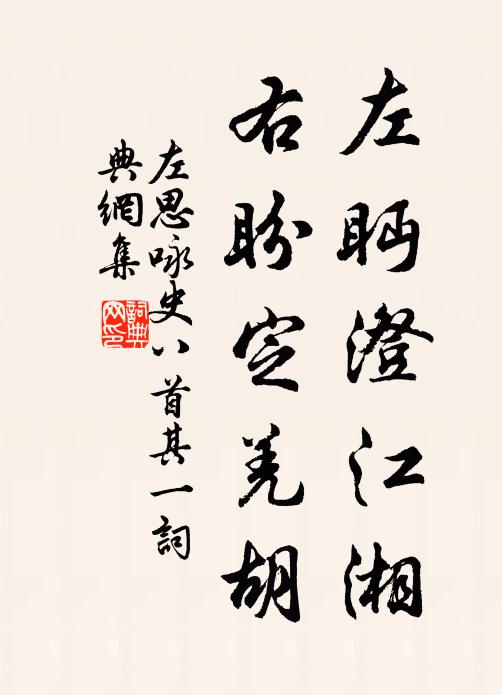 左眄澄江湘
右盼定羌胡
左思咏史八首其一詞
典網集
詞典
网印